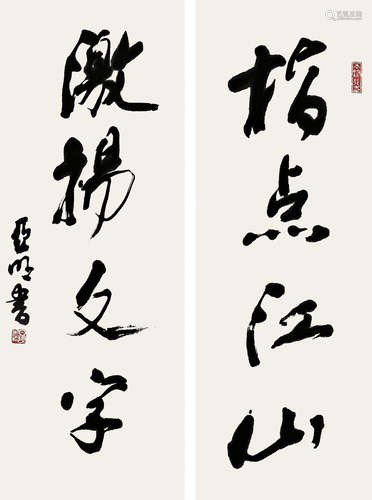 指点江山
激扬文字
亚明书